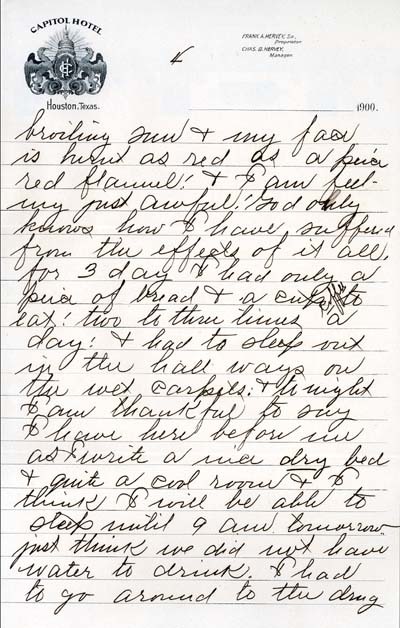 CAPITOL HOTEL
FRANK A. HERVEY, Sr.,
Proprietor
CHAS. B. HERVEY,
Manager
4
Houston, Texas.
1900.
broiling sun & my face
is burnt as red as a piece
red flannel! & I am feel-
ing just awful! God only
knows how I have suffered
from the effects of it all,
for 3 day I had only a
piece of bread & a cup coffee to
eat! two to three times a
day! & had to sleep out
in the hall ways on
the wet carpets. & tonight
I am thankful to say
I have here before me
as I write a nice dry bed
& quite a cool room & I
think I will be able to
sleep until 9 am tomorrow
just think we did not have
water to drink. I had
to go around to the drug